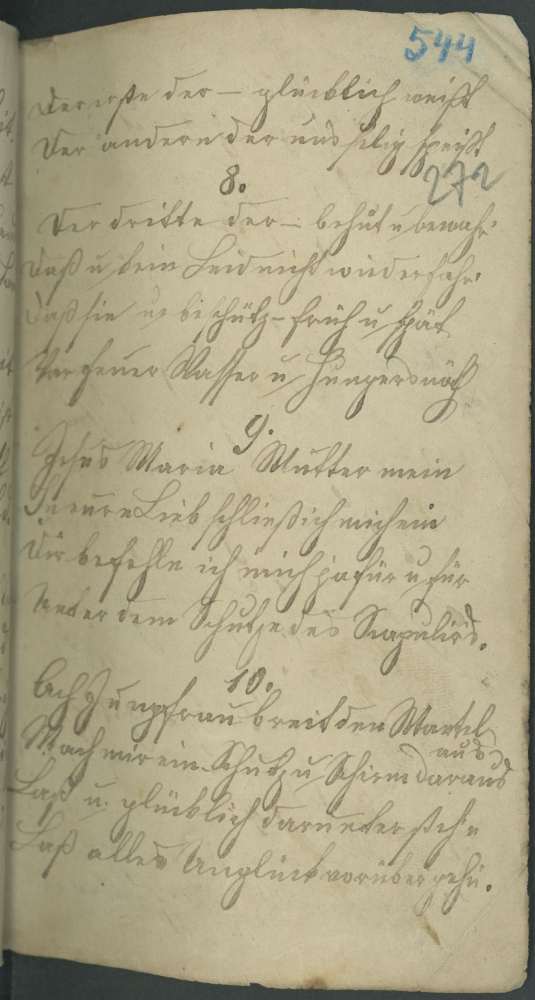 544
Der erste der – glücklich weißt
Der andere der uns selig speißt
272
8.
Der dritte der – behüt u bewahr
Daß u kein Leid nicht wiederfahr
Daß sie us beschütz – früh u spät
Vor feuer Wasser u Hungersnöth
9.
Jesus Maria Mutter mein
In eure Lieb schließ ich mich ein
Dir befehle ich mich ja für u für
Unter dem Schutze des Scapulirs.
10.
Ach Jungfrau breit den Mantel
aus
Mach mir ein Schutz u Schirm daraus
Laß u. glücklich darunter steh'n
Laß alles Unglück vorüber gehn.